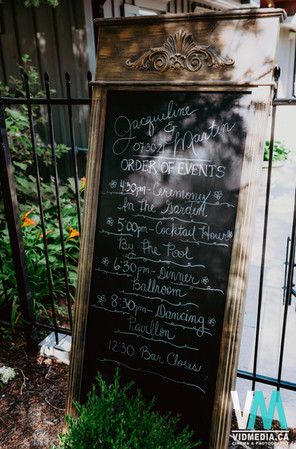 Jacqueline
&
Martin
07.30.21
ORDER OF EVENTS
4:30pm - Ceremony
In the Garden
5:00pm - Cocktail Hour
By the Pool
6:30pm - Dinner
Ballroom
8:30pm - Dancing
Pavillon
12:30 Bar Closes
VM
VIDMEDIA.CA
CINEMA & PHOTOGRAPHY